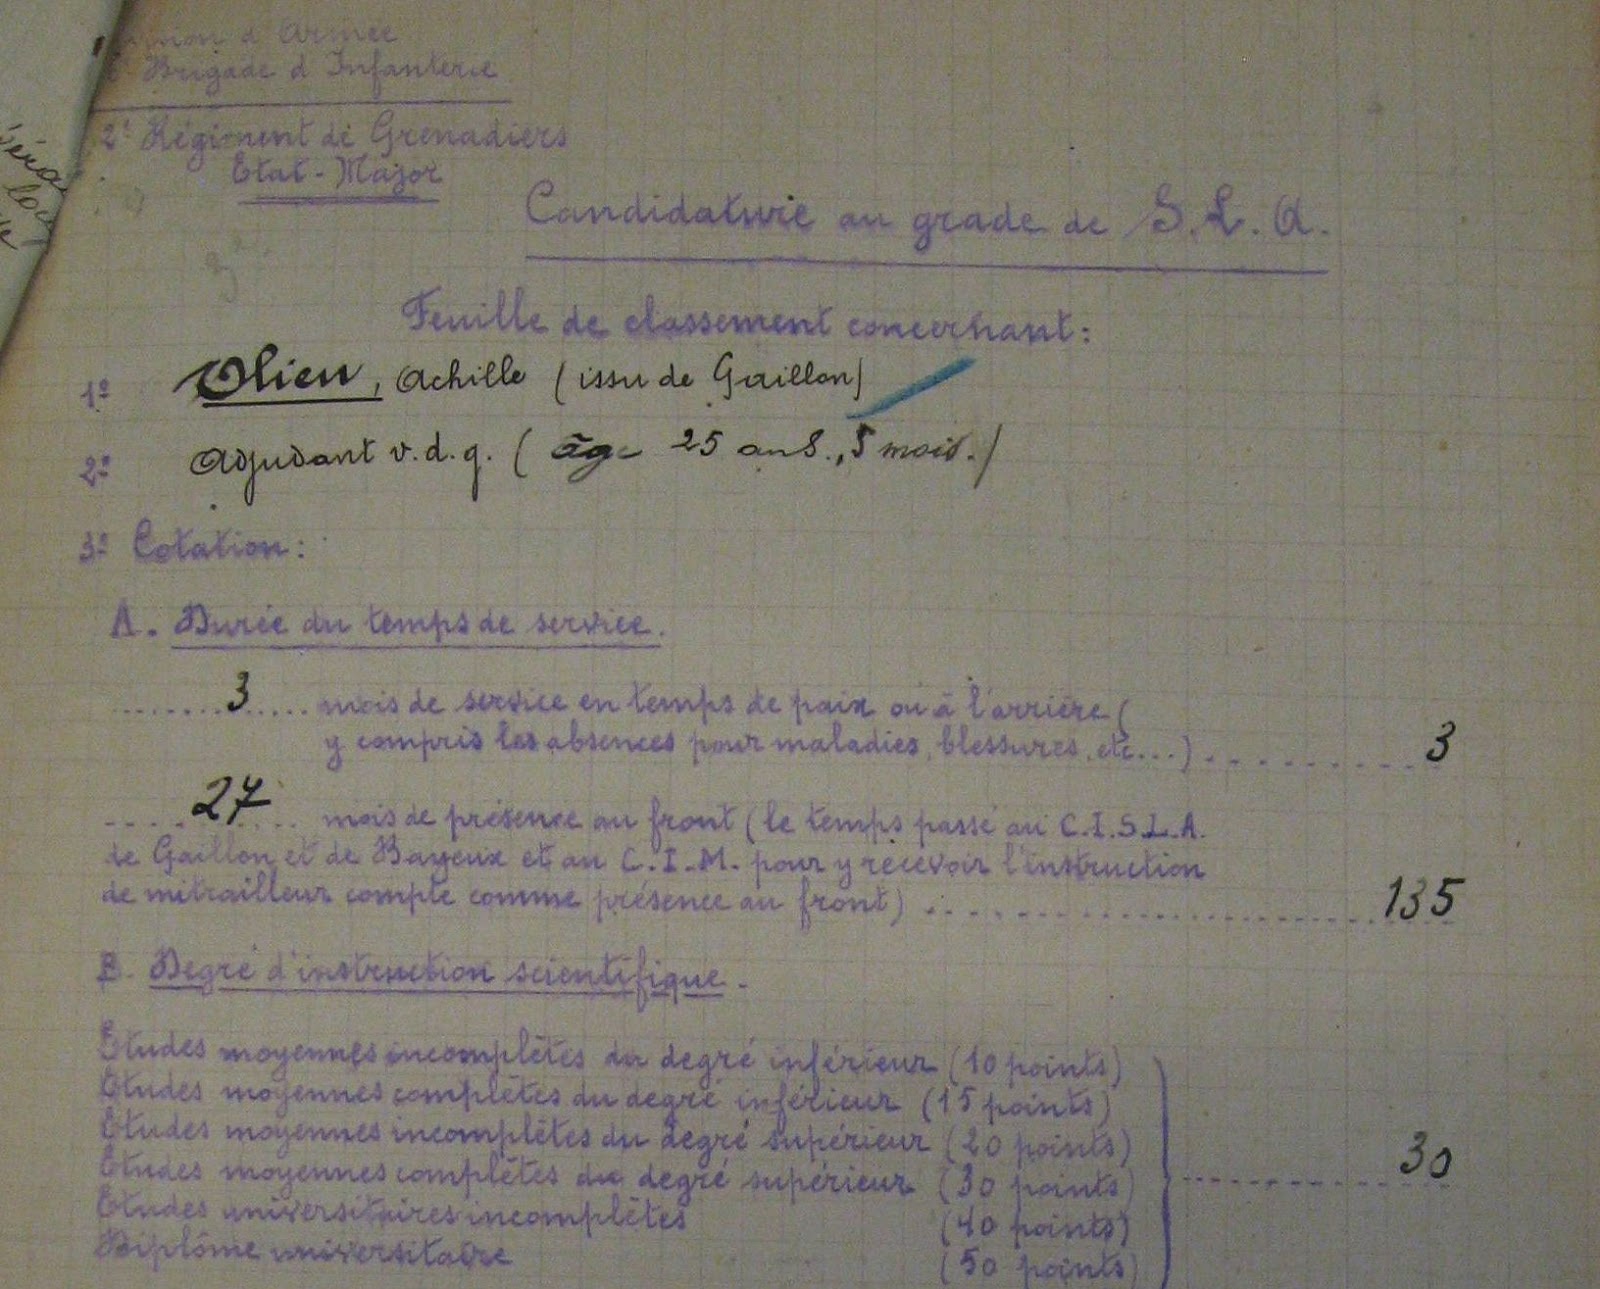 d'Armée
Brigade d'Infanterie
2e Régiment de Grenadiers
Etat-Major
Candidature au grade de S.L.A.
Feuille de classement concernant:
1º Olieu, Achille (issu de Gaillon)
2º Adjudant v.d.g. (âge 25 ans., 5 mois.)
3º Cotation:
A. Durée du temps de service.
3 mois de service en temps de paix ou à l'arrière (
y compris les absences pour maladies, blessures, etc...) 3
27 mois de présence au front (le temps passé au C.I.S.L.A.
de Gaillon et de Bayeux et au C.I.M. pour y recevoir l'instruction
de mitrailleur compte comme présence au front) 135
B. Degré d'instruction scientifique.
Etudes moyennes incomplètes du degré inférieur (10 points)
Etudes moyennes complètes du degré inférieur (15 points)
Etudes moyennes incomplètes du degré supérieur (20 points)
Etudes moyennes complètes du degré supérieur (30 points) 30
Etudes universitaires incomplètes (40 points)
Diplôme universitaire (50 points)